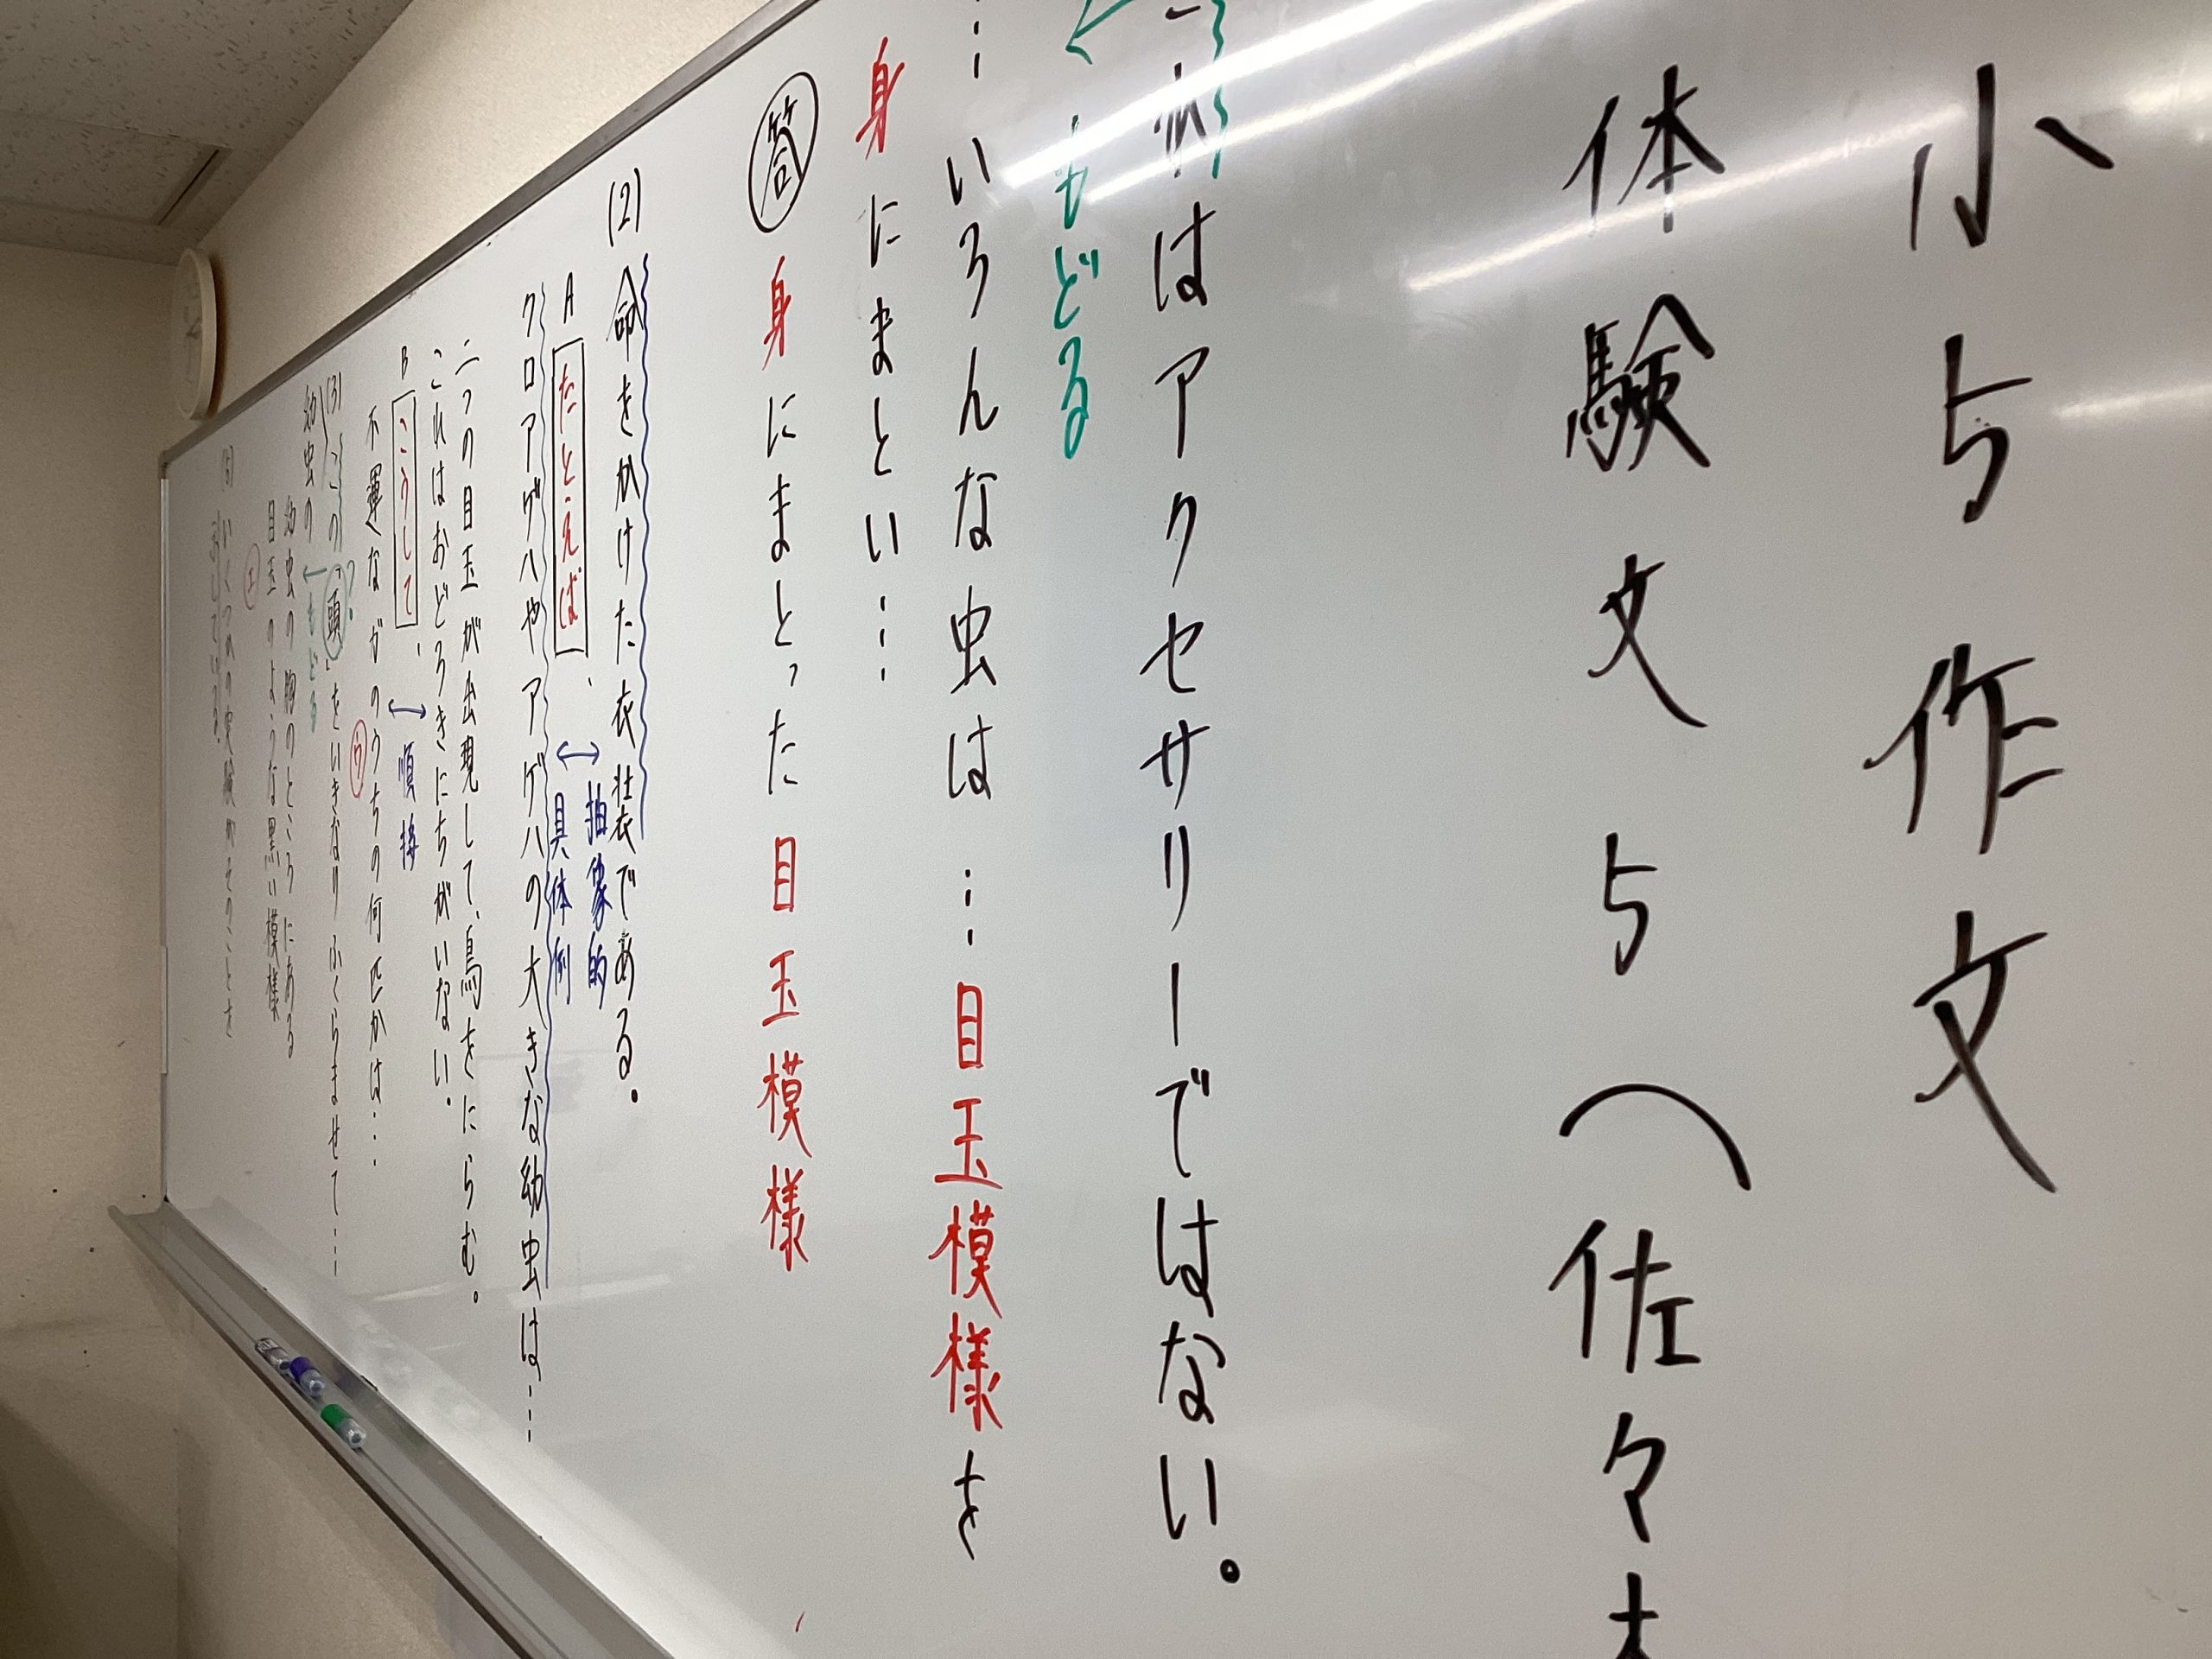 小5 作文
体験文 5 (佐々
れはアクセサリーではない。
もどる
…いろんな虫は…目玉模様を
身にまとい…
答 身にまとった目玉模様
(2) 命をかけた衣装である。
抽象的
A たとえば、
具体例
クロアゲハやアゲハの大きな幼虫は…
二つの目玉が出現して、鳥をにらむ。
これはおどろきにちがいない。
B こうして、
順接
不運なガのうちの何匹かは…
ウ
?
(3) この「頭」をいきなりふくらませて…
もどる
幼虫の
幼虫の胸のところにある
目玉のような黒い模様
エ
いくつかの実験がそのことを
示している。